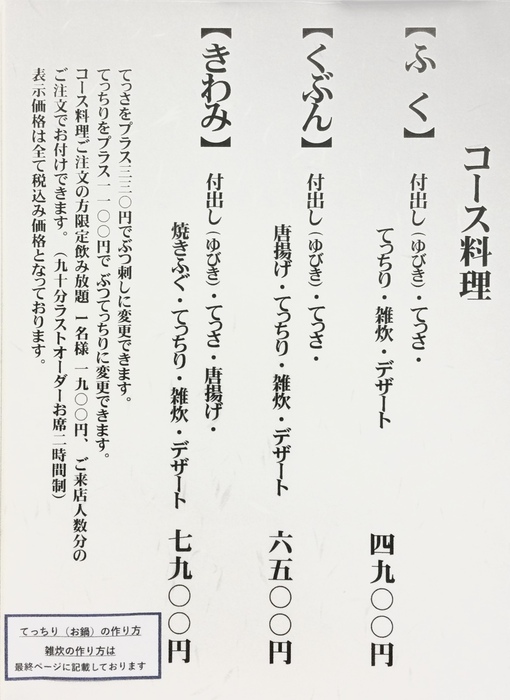 コース料理
【ふく】
付出し（ゆびき）・てっさ・
てっちり・雑炊・デザート
四九〇〇円
【くぶん】
付出し（ゆびき）・てっさ・
唐揚げ・てっちり・雑炊・デザート
六五〇〇円
【きわみ】
付出し（ゆびき）・てっさ・唐揚げ・
焼きふぐ・てっちり・雑炊・デザート
七九〇〇円
てっさをプラス三三〇円でぶつ刺しに変更できます。
てっちりをプラス一一〇〇円で ぶつてっちりに変更できます。
コース料理ご注文の方限定飲み放題 一名様 一九〇〇円、ご来店人数分の
ご注文でお付けできます。（九十分ラストオーダーお席二時間制）
表示価格は全て税込み価格となっております。
てっちり（お鍋）の作り方
雑炊の作り方は
最終ページに記載しております